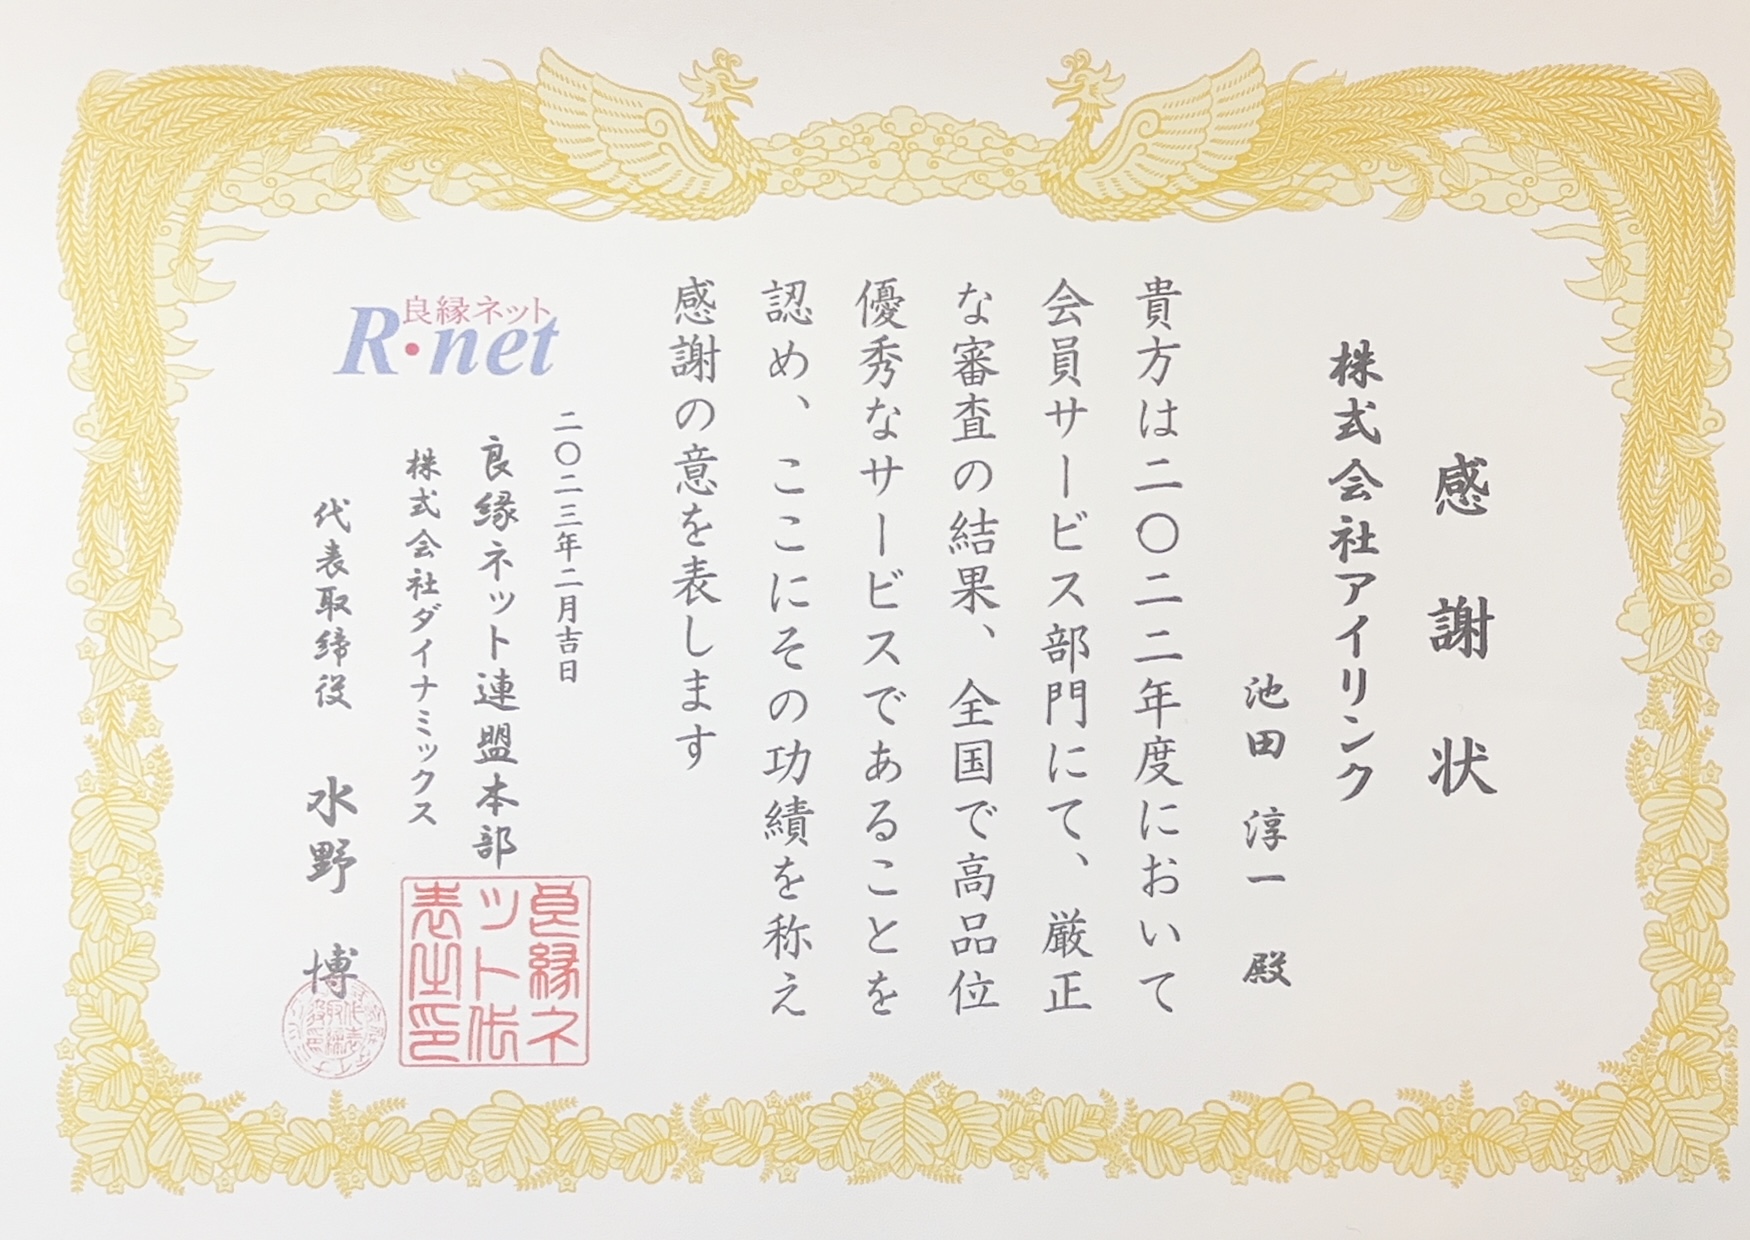 感謝状
株式会社アイリンク
池田 淳一 殿
貴方は二〇二二年度において
会員サービス部門にて、厳正
な審査の結果、全国で高品位
優秀なサービスであることを
認め、ここにその功績を称え
感謝の意を表します
良縁ネット
R・net
二〇二三年二月吉日
良縁ネット連盟本部
株式会社ダイナミックス
代表取締役 水野 博
良縁ネ
ット代
表之印